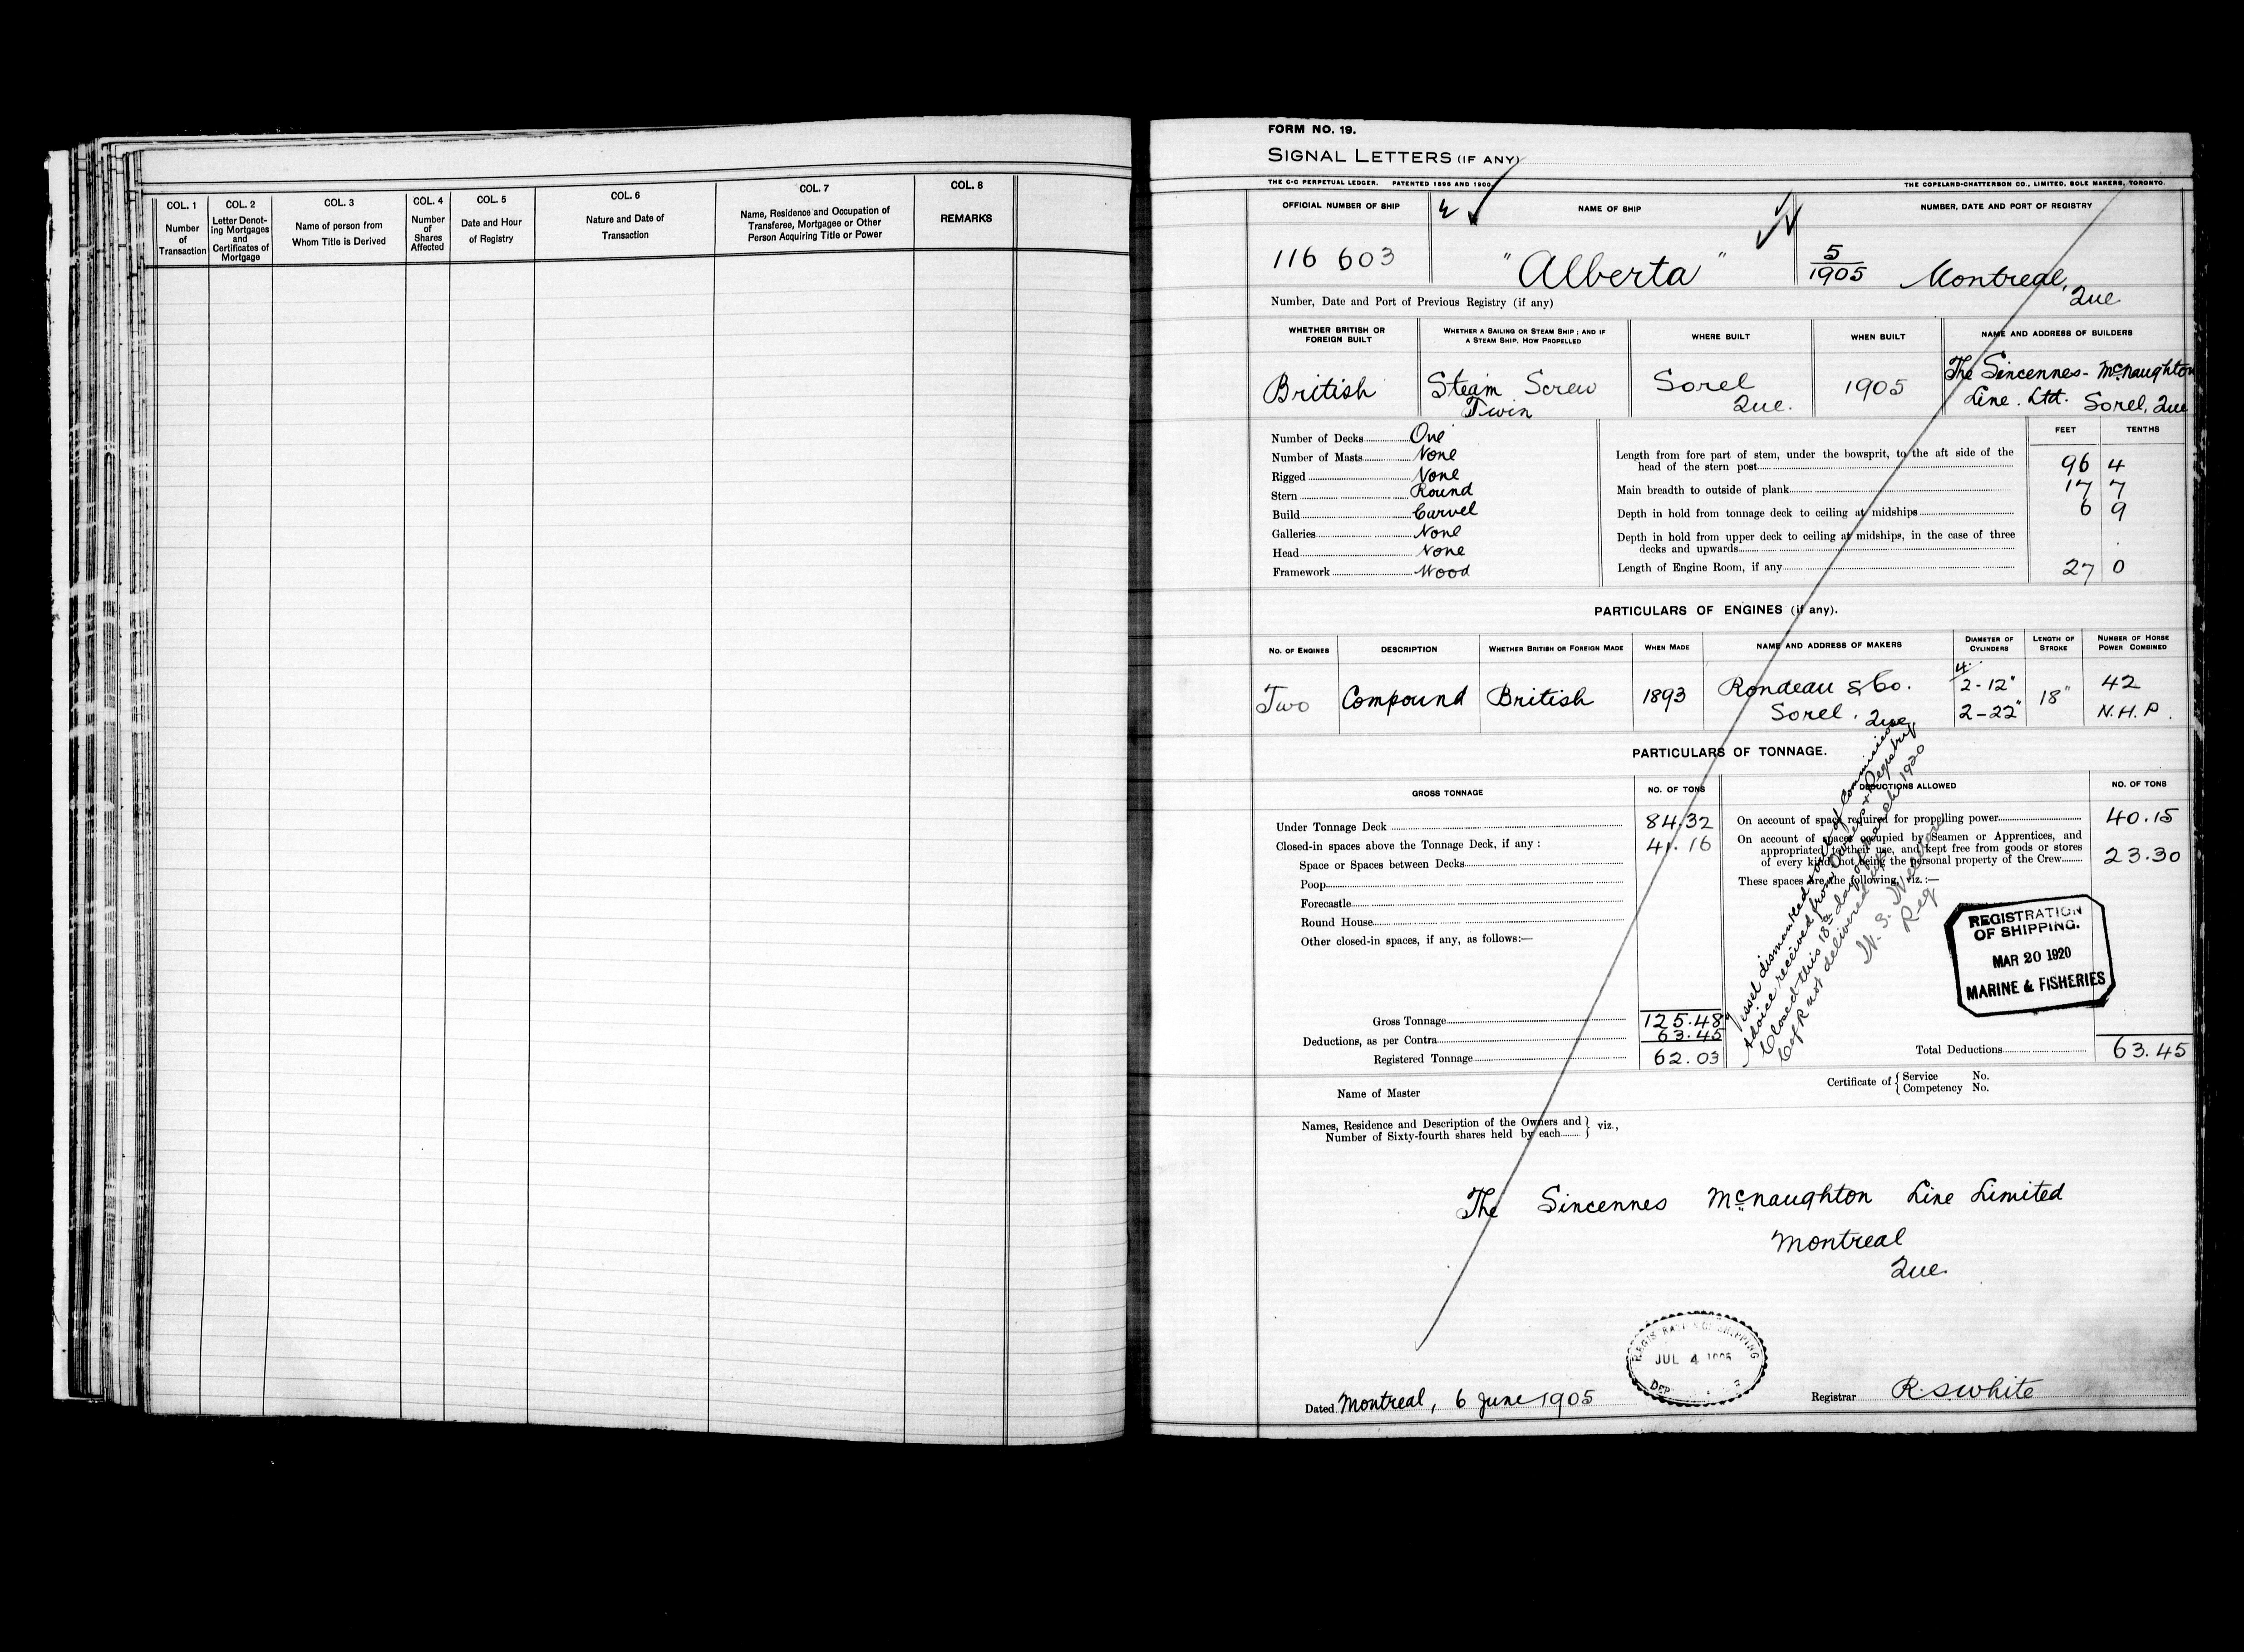 COL. 1
Number
of
Transaction
COL. 2
Letter Denot-
ing Mortgages
and
Certificates of
Mortgage
COL. 3
Name of person from
Whom Title is Derived
COL. 4
Number
of
Shares
Affected
COL. 5
Date and Hour
of Registry
COL. 6
Nature and Date of
Transaction
COL. 7
Name, Residence and Occupation of
Transferee, Mortgagee or Other
Person Acquiring Title or Power
COL. 8
REMARKS
FORM NO. 19.
SIGNAL LETTERS (IF ANY)
THE C-C PERPETUAL LEDGER. PATENTED 1896 AND 1900. THE COPELAND-CHATTERSON CO., LIMITED, SOLE MAKERS, TORONTO.
OFFICIAL NUMBER OF SHIP
116 603
NAME OF SHIP
"Alberta"
NUMBER, DATE AND PORT OF REGISTRY
5
1905 Montreal,
Que
Number, Date and Port of Previous Registry (if any)
WHETHER BRITISH OR
FOREIGN BUILT
British
WHETHER A SAILING OR STEAM SHIP; AND IF
A STEAM SHIP, HOW PROPELLED
Steam Screw
Twin
WHERE BUILT
Sorel
Que.
WHEN BUILT
1905
NAME AND ADDRESS OF BUILDERS
The Sincennes-McNaughton
Line. Ltd. Sorel, Que
Number of Decks One
Number of Masts None
Rigged None
Stern Round
Build Carvel
Galleries None
Head None
Framework Wood
FEET TENTHS
Length from fore part of stem, under the bowsprit, to the aft side of the
head of the stern post 96 4
Main breadth to outside of plank 17 7
Depth in hold from tonnage deck to ceiling at midships 6 9
Depth in hold from upper deck to ceiling at midships, in the case of three
decks and upwards
Length of Engine Room, if any 27 0
PARTICULARS OF ENGINES (if any).
NO. OF ENGINES
Two
DESCRIPTION
Compound
WHETHER BRITISH OR FOREIGN MADE
British
WHEN MADE
1893
NAME AND ADDRESS OF MAKERS
Rondeau & Co.
Sorel. Que
DIAMETER OF
CYLINDERS
4
2-12"
2-22"
LENGTH OF
STROKE
18"
NUMBER OF HORSE
POWER COMBINED
42
N.H.P.
PARTICULARS OF TONNAGE.
GROSS TONNAGE NO. OF TONS
Under Tonnage Deck 84.32
Closed-in spaces above the Tonnage Deck, if any: 41.16
Space or Spaces between Decks
Poop
Forecastle
Round House
Other closed-in spaces, if any, as follows:—
Gross Tonnage 125.48
Deductions, as per Contra 63.45
Registered Tonnage 62.03
DEDUCTIONS ALLOWED NO. OF TONS
On account of space required for propelling power 40.15
On account of spaces occupied by Seamen or Apprentices, and
appropriated to their use, and kept free from goods or stores
of every kind, not being the personal property of the Crew 23.30
These spaces are the following, viz.:—
Vessel dismantled & out of Commission
Advice received from Owners & Registry
Closed this 18th day of March 1920
C of R not delivered up
Reg
REGISTRATION
OF SHIPPING.
MAR 20 1920
MARINE & FISHERIES
Total Deductions 63.45
Name of Master
Certificate of { Service No.
Competency No.
Names, Residence and Description of the Owners and } viz.,
Number of Sixty-fourth shares held by each
The Sincennes McNaughton Line Limited
Montreal
Que
JUL 4 1905
Dated Montreal, 6 June 1905
Registrar R.S. White